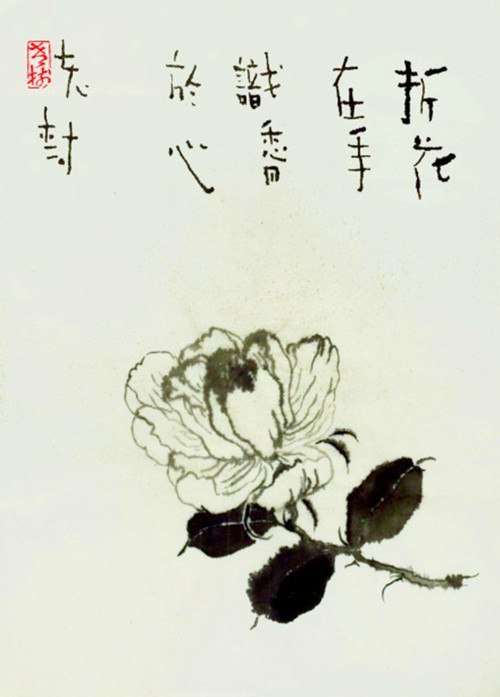 折花
在手
識香
於心
老村